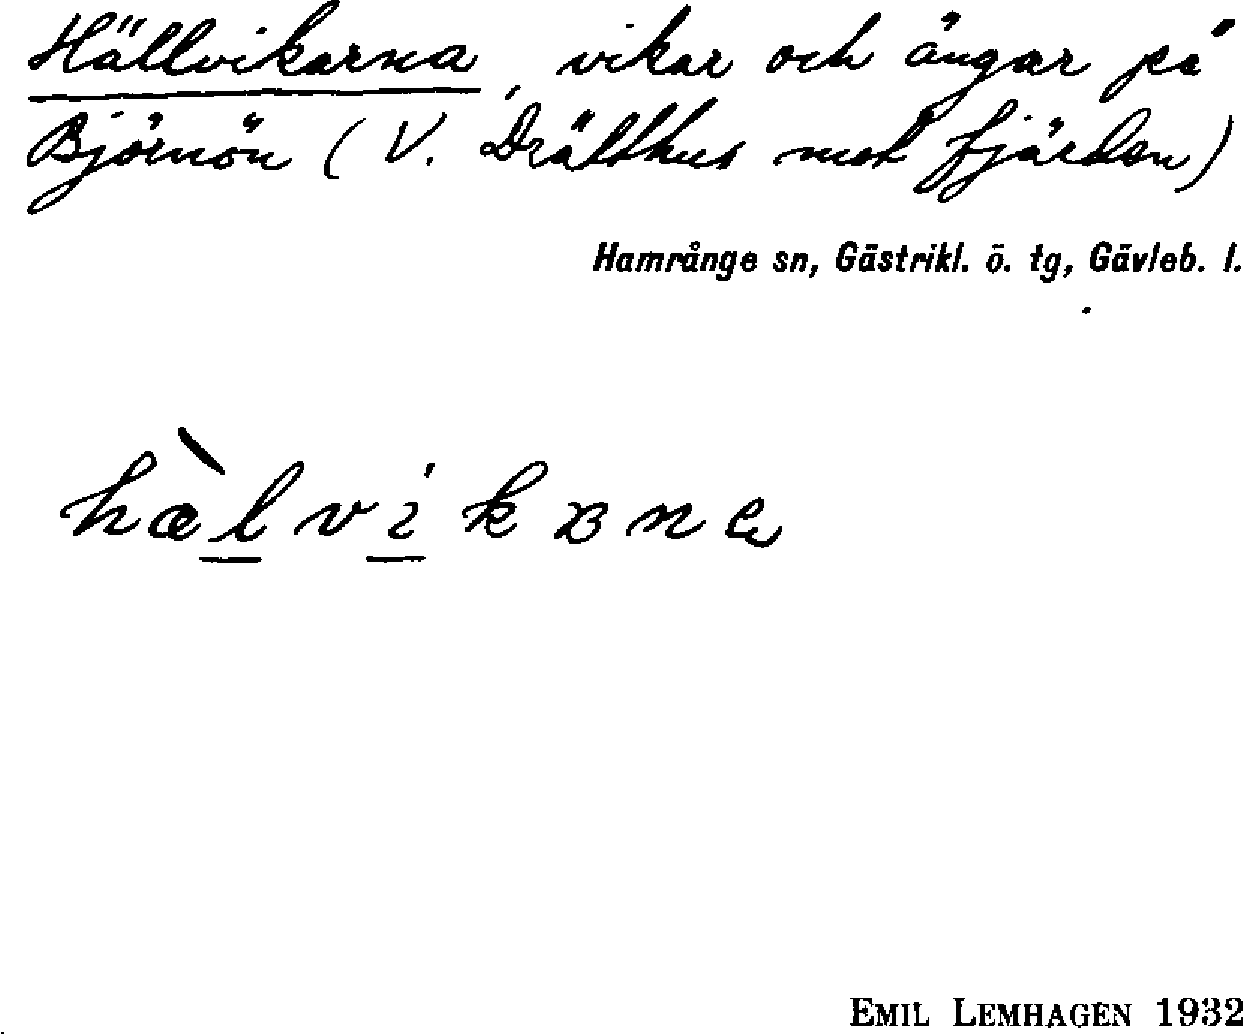 Hällvikarna, vikar och ängar på
Björnön (V. Drälthus mot fjärden)
Hamrånge sn, Gästrikl. ö. tg, Gävleb. l.
hæ̀lvikɐne
EMIL LEMHAGEN 1932